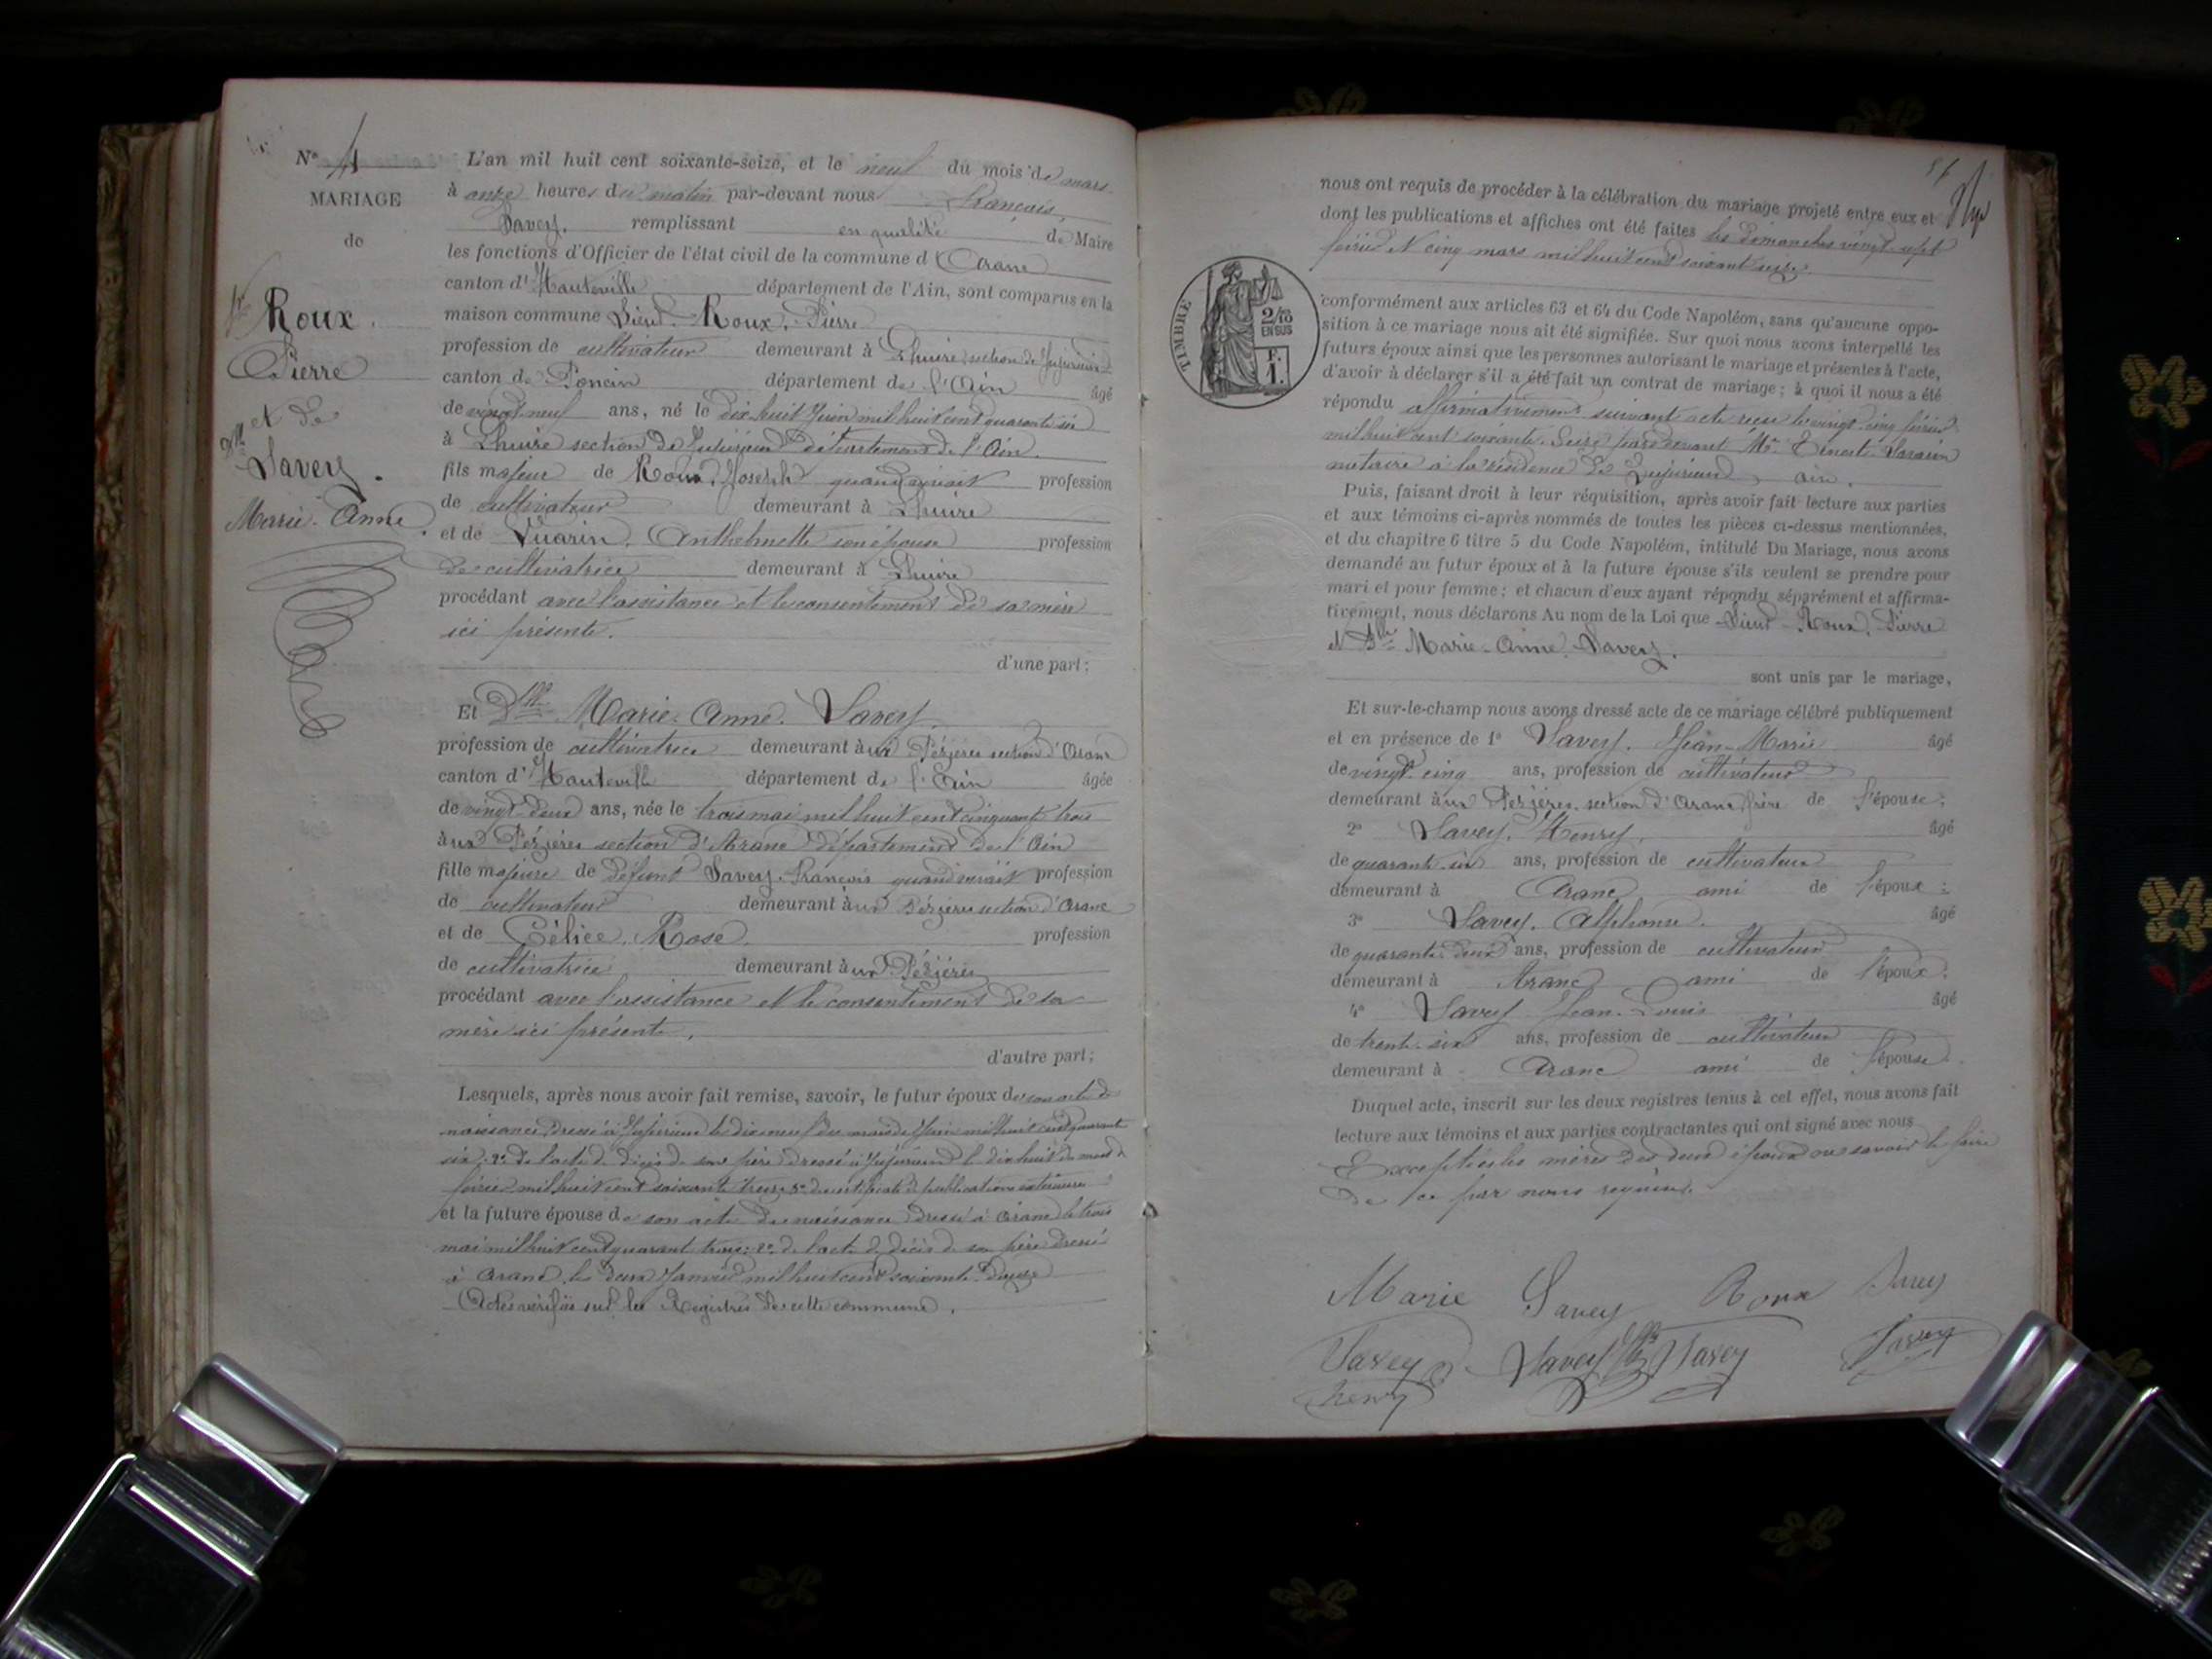 N° 4
MARIAGE
de
Sr
Roux.
Pierre
et de
Dlle
Savey.
Marie-Anne.
L'an mil huit cent soixante-seize, et le neuf du mois de mars
à onze heures du matin par-devant nous François,
Savey. remplissant en qualité de Maire
les fonctions d'Officier de l'état civil de la commune d'Aranc
canton d'Hauteville département de l'Ain, sont comparus en la
maison commune Sieur Roux, Pierre
profession de cultivateur demeurant à Lhuire section de Jujurieux
canton de Poncin département de l'Ain âgé
de vingt neuf ans, né le dix huit Juin mil huit cent quarante six
à Lhuire section de Jujurieux département de l'Ain.
fils majeur de Roux, Joseph quand vivait profession
de cultivateur demeurant à Lhuire
et de Vuarin, Anthelmette son épouse profession
de cultivatrice demeurant à Lhuire
procédant avec l'assistance et le consentement de sa mère
ici présente.
d'une part;
Et Dlle Marie-Anne. Savey.
profession de cultivatrice demeurant aux Pézières section d'Aranc
canton d'Hauteville département de l'Ain âgée
de vingt deux ans, née le trois mai mil huit cent cinquante trois
aux Pézières section d'Aranc département de l'Ain
fille majeure de défunt Savey. François quand vivait profession
de cultivateur demeurant aux Pézières section d'Aranc
et de Rose. profession
de cultivatrice demeurant aux Pézières
procédant avec l'assistance et le consentement de sa
mère ici présente.
d'autre part;
Lesquels, après nous avoir fait remise, savoir, le futur époux de son acte de
naissance dressé à Jujurieux le dix neuf du mois de Juin mil huit cent quarante
six. 2° de l'acte de décès de son père dressé à Jujurieux le dix huit du mois de
février mil huit cent soixante treize 3° du certificat de publications extérieures
et la future épouse de son acte de naissance dressé à Aranc le trois
mai mil huit cent quarant trois; 2° de l'acte de décès de son père dressé
à Aranc, le deux Janvier mil huit cent soixante
Actes vérifiés sur les Registres de cette commune.
nous ont requis de procéder à la célébration du mariage projeté entre eux et
dont les publications et affiches ont été faites les dimanches vingt sept
février et cinq mars mil huit cent soixant seize.
TIMBRE
2/10
EN SUS
F.
1.
conformément aux articles 63 et 64 du Code Napoléon, sans qu'aucune oppo-
sition à ce mariage nous ait été signifiée. Sur quoi nous avons interpellé les
futurs époux ainsi que les personnes autorisant le mariage et présentes à l'acte,
d'avoir à déclarer s'il a été fait un contrat de mariage; à quoi il nous a été
répondu affirmativement suivant acte reçu le vingt cinq février
mil huit cent soixante-Seize pardevant Me Ernest
notaire à la résidence de Jujurieux, ain.
Puis, faisant droit à leur réquisition, après avoir fait lecture aux parties
et aux témoins ci-après nommés de toutes les pièces ci-dessus mentionnées,
et du chapitre 6 titre 5 du Code Napoléon, intitulé Du Mariage, nous avons
demandé au futur époux et à la future épouse s'ils veulent se prendre pour
mari et pour femme; et chacun d'eux ayant répondu séparément et affirma-
tivement, nous déclarons Au nom de la Loi que Sieur Roux, Pierre
et Dlle Marie-Anne. Savey.
sont unis par le mariage,
Et sur-le-champ nous avons dressé acte de ce mariage célébré publiquement
et en présence de 1° Savey. Jean-Marie âgé
de vingt cinq ans, profession de cultivateur
demeurant aux Pézières section d'Aranc frère de l'épouse;
2° Savey. Henry. âgé
de quarante six ans, profession de cultivateur
demeurant à Aranc ami de l'époux;
3° Savey. Alphonse. âgé
de quarante deux ans, profession de cultivateur
demeurant à Aranc ami de l'époux;
4° Savey Jean-Louis âgé
de trente six ans, profession de cultivateur
demeurant à Aranc ami de l'épouse
Duquel acte, inscrit sur les deux registres tenus à cet effet, nous avons fait
lecture aux témoins et aux parties contractantes qui ont signé avec nous
Excepté les mères des deux époux savoir le faire
de ce par nous requises.
Marie Savey Roux Savey
Savey Savey Savey Savey
henry